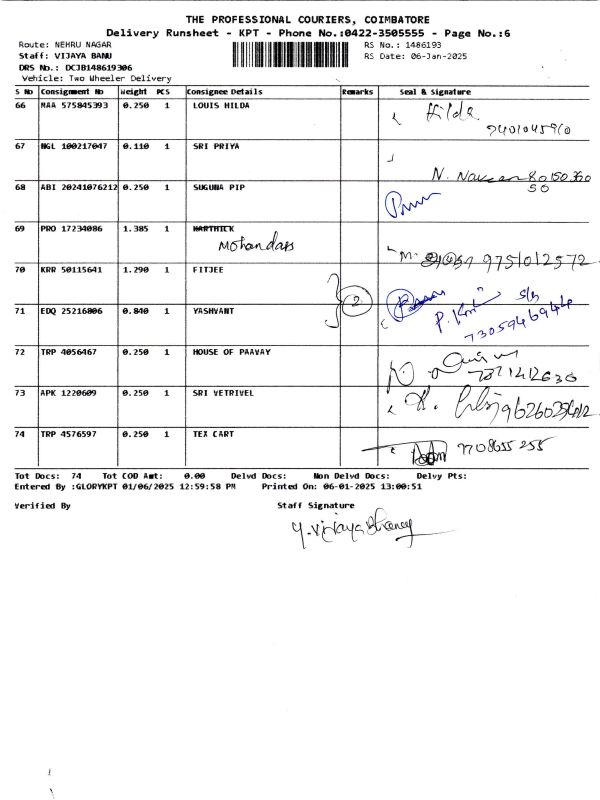 THE PROFESSIONAL COURIERS, COIMBATORE
Delivery Runsheet - KPT - Phone No.:0422-3505555 - Page No.:6
Route: NEHRU NAGAR RS No.: 1486193
Staff: VIJAYA BANU RS Date: 06-Jan-2025
DRS No.: DCJB148619306
Vehicle: Two Wheeler Delivery
S No Consignment No Weight PCS Consignee Details Remarks Seal & Signature
66 MAA 575845393 0.250 1 LOUIS HILDA Hilda
9401045910
67 NGL 100217047 0.110 1 SRI PRIYA
N. 80150360
50
68 ABI 20241076212 0.250 1 SUGUNA PIP
69 PRO 17234086 1.385 1 KARTHICK
Mohandass M. 9751012572
70 KRR 50115641 1.290 1 FITJEE
2
71 EDQ 25216806 0.840 1 YASHVANT P.
7305946944
72 TRP 4056467 0.250 1 HOUSE OF PAAVAY
73 APK 1220609 0.250 1 SRI VETRIVEL
74 TRP 4576597 0.250 1 TEX CART
Tot Docs: 74 Tot COD Amt: 0.00 Delvd Docs: Non Delvd Docs: Delvy Pts:
Entered By :GLORYKPT 01/06/2025 12:59:58 PM Printed On: 06-01-2025 13:00:51
Verified By Staff Signature